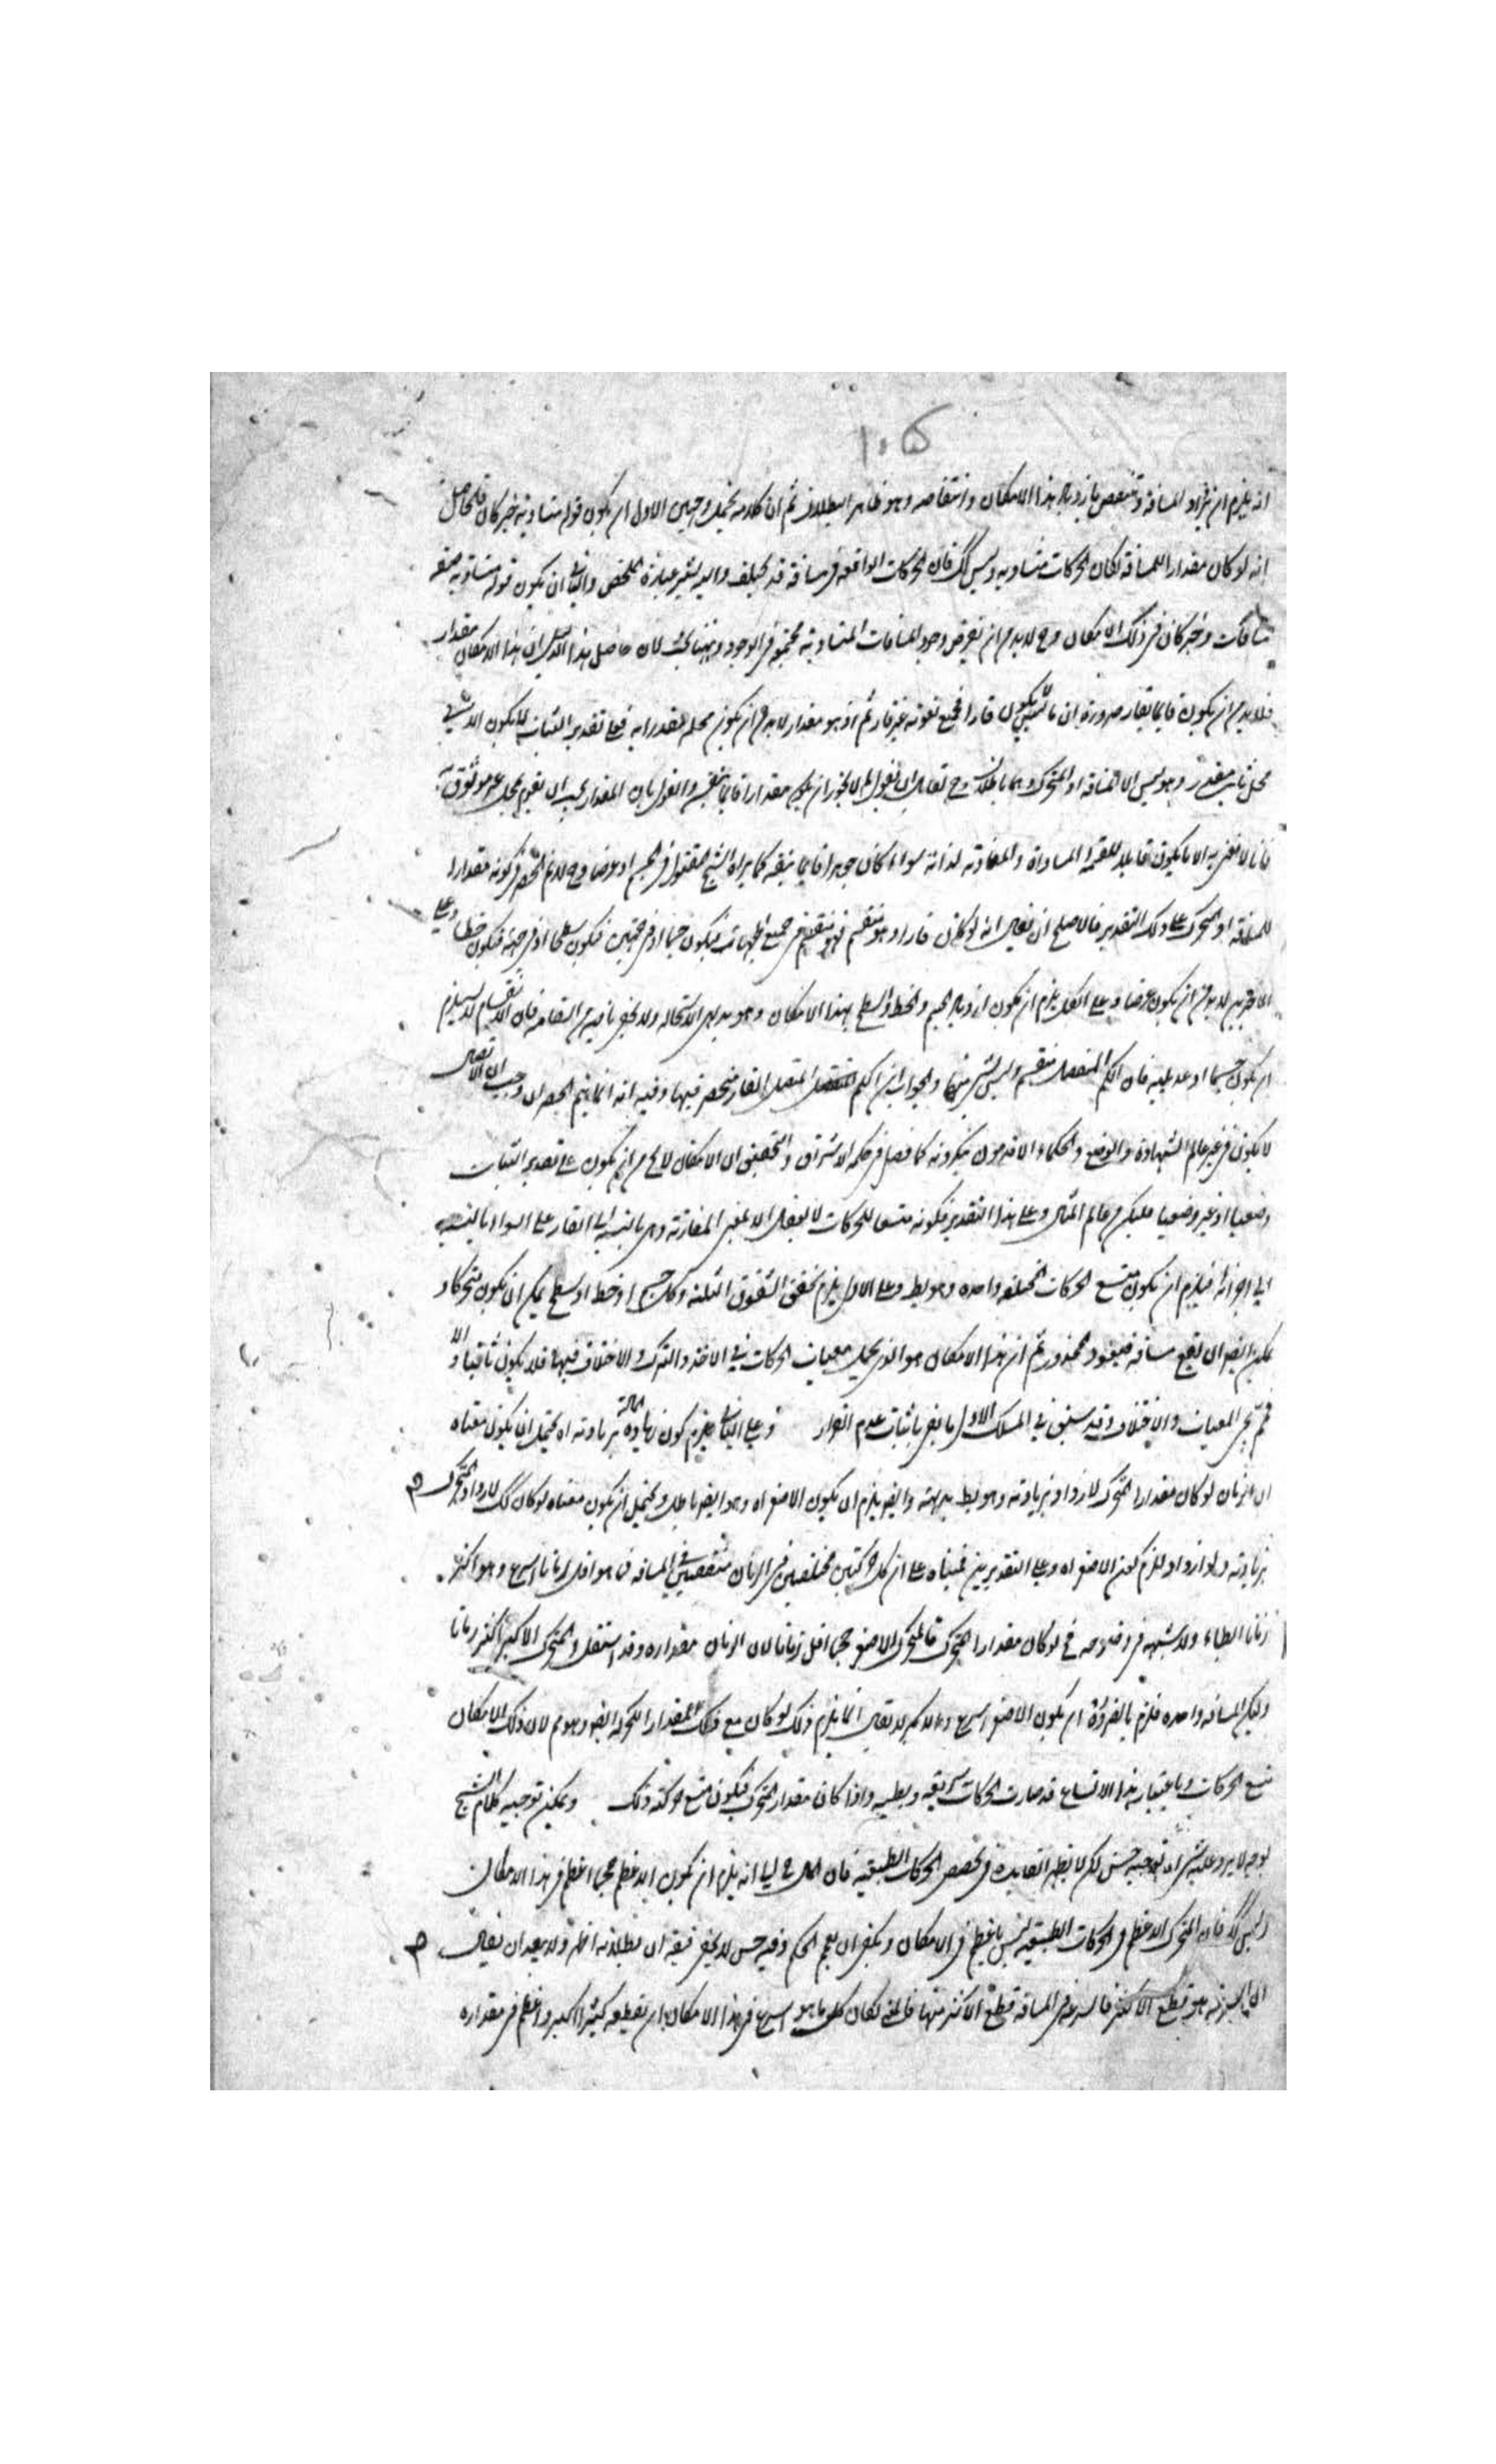 ١٠٥
انه يلزم ان يزداد المسافة وتنتقص بازدياد هذا الامكان وانتقاصه وهو ظاهر البطلان ثم ان كلامه يحتمل وجهين الاول ان يكون قوله متساوية خبر كان فالحاصل
انه لو كان مقدارا للمسافة لكان الحركات متساويه وليس كك فان الحركات الواقعه فى مسافة قد يختلف واليه يشير عبارة الملخص والثانى ان يكون قوله متساويه صفه
مسافات وخبر كان فى ذلك الامكان وح لا بد من ان يفرض وجود المسافات المتساوية مجتمعة فى الوجود وههنا بحث لان حاصل هذا الدليل ان هذا الامكان مقدار
فلا بد من ان يكون قايما بقار ضرورة ان ما ليس يكون قارا فجميع نعوته غير قار ثم اذ هو مقدار لا بد من ان يكون محله مقدرا به فعلى تقدير الثبات لا يكون الا شئ
محل ثابت مقدر وهو ليس الا المسافة او المتحرك وهما باطلان وح لقائل ان يقول لم لا يجوز ان يكون مقدارا قايما بنفسه والقول بان المقدار يجب ان يقوم بمحل غير موثوق به
فانا لا نعنى به الا ما يكون قابلا للقسمة المساواة والمفاوتة لذاته سواء كان جوهرا قايما بنفسه كما يراه الشيخ المقتول فى الجسم او عرضا وح لا يتم الحصر فى كونه مقدارا
للمسافة او المتحرك على ذلك التقدير فالاصلح ان يقال انه لو كان قارا وهو منقسم فهو منقسم فى جميع الجهات فيكون جسما او فى جهتين فيكون سطحا او فى جهة فيكون خطا وعلى
الاخيرين لا بد من ان يكون عرضا وعلى الكل يلزم ان يكون ازدياد الجسم والخط والسطح بهذا الامكان وهو بديهى الاستحاله ولا يخفى ما فيه من السقامه فان الانقسام لا يستلزم
ان يكون جسما او عدديه فان الكم المنفصل منقسم وليس بشئ منها والجواب ان الكم المتصل القار منحصر فيها وفيه انه انما يتم الحصر ان وجب ان الاتصال
لا يكون فى غير عالم الشهادة والوضع والحكماء الاقدمون ينكرونه كما فصل فى حكمة الاشراق والتحقيق ان الامكان لا يخ من ان يكون على تقدير الثبات
وضعيا او غير وضعيا فليكن من عالم المثال وعلى هذا التقدير فكونه متسعا للحركات لا يعقل الا بمعنى المقارنة وهى بالنسبة الى القار على السواء بالنسبه
الى اجزائه فيلزم ان يكون متسع الحركات المختلفه واحده وهو بط وعلى الاول يلزم تحقق الشقوق الثلثة وكل جسم او خط او سطح يمكن ان يكون متحركا و
يمكن ايضا ان يقع مسافه فيعود المحذور ثم ان هذا الامكان هو الذى يحمل معيات الحركات فى الاخذ والترك والاختلاف فيهما فلا يكون ثابتا والا
فلم يجر المعيات والاختلاف وقد سبق فى المسلك الاول ما يفى باثبات عدم القرار وعلى الثانى يلزم كون زيادة المادة بزيادته اه يحتمل ان يكون معناه
ان الزمان لو كان مقدارا للمتحرك لازداد بزيادته وهو بط بديهة وايضا يلزم ان يكون الاصغر اه وهو ايضا باطل ويحتمل ان يكون معناه لو كان كك لازداد المتحرك
بزيادته ولو ازداد للزم كون الاصغر اه وعلى التقديرين بناه على ان كل حركتين مختلفتين فى الزمان متفقتين فى المسافه فما هو اقل زمانا اسرع وما هو اكثر
زمانا ابطاء ولا شبهه فى وضوحه فح لو كان مقدارا للمتحرك فالمتحرك الاصغر حجما اقل زمانا لان الزمان مقداره وقد استقل والمتحرك الاكبر اكثر زمانا
وليكن المسافه واحده فلزم بالضرورة ان يكون الاصغر اسرع والاكبر لا يقال انما يلزم ذلك لو كان مع ذلك المقدار للحركة ايضا وهو مم لان ذلك الامكان
متسع الحركات وباعتبار هذا الاتساع قد صارت الحركات سريعة وبطيئه واذا كان مقدار المتحرك فيكون متسع حركته ذلك ويمكن توجيه كلام الشيخ
بوجه لا يرد عليه شئ وهو توجيه حسن لكن لا يظهر الفايدة فى تخصيص الحركات الطبيعيه فان المال ح ليس الا انه يلزم ان يكون الاعظم حجما اعظم فى هذا الامكان
وليس كك فان المتحرك الاعظم فى الحركات الطبيعيه ليس باعظم فى الامكان ويكفى ان يعمم الحكم وفيه حسن لا يخفى فتيقن ان بطلانه اظهر ولا يبعد ان يقال
ان السرعة هو قطع الاكثر فالسرعه فى المسافة قطع الاكثر منها فالحق لكان كل ما هو اسرع فى هذا الامكان اى يقطعه كثيرا اكبر واعظم فى مقداره